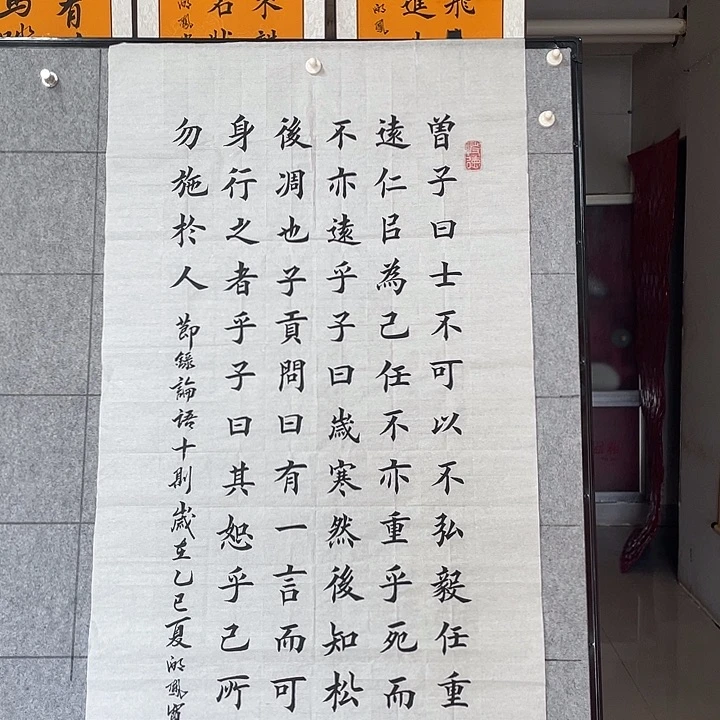 曽子曰士不可以不弘毅任重
遠仁㠯為己任不亦重乎死而
不亦遠乎子曰歲寒然後知松
後凋也子貢問曰有一言而可
身行之者乎子曰其恕乎己所
勿施於人
節録論語十則歲在乙巳夏